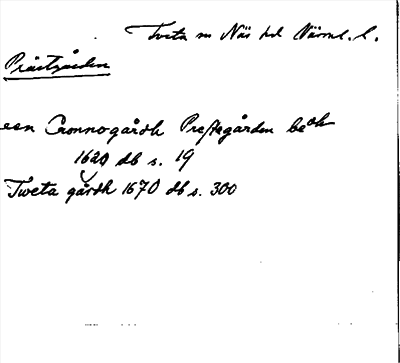 Tveta sn Näs hd Värml. l.
Prästgården
een Cronnogårdh Prestegården be:dh
1620 db s. 19
Tweta gårdh 1670 db s. 300